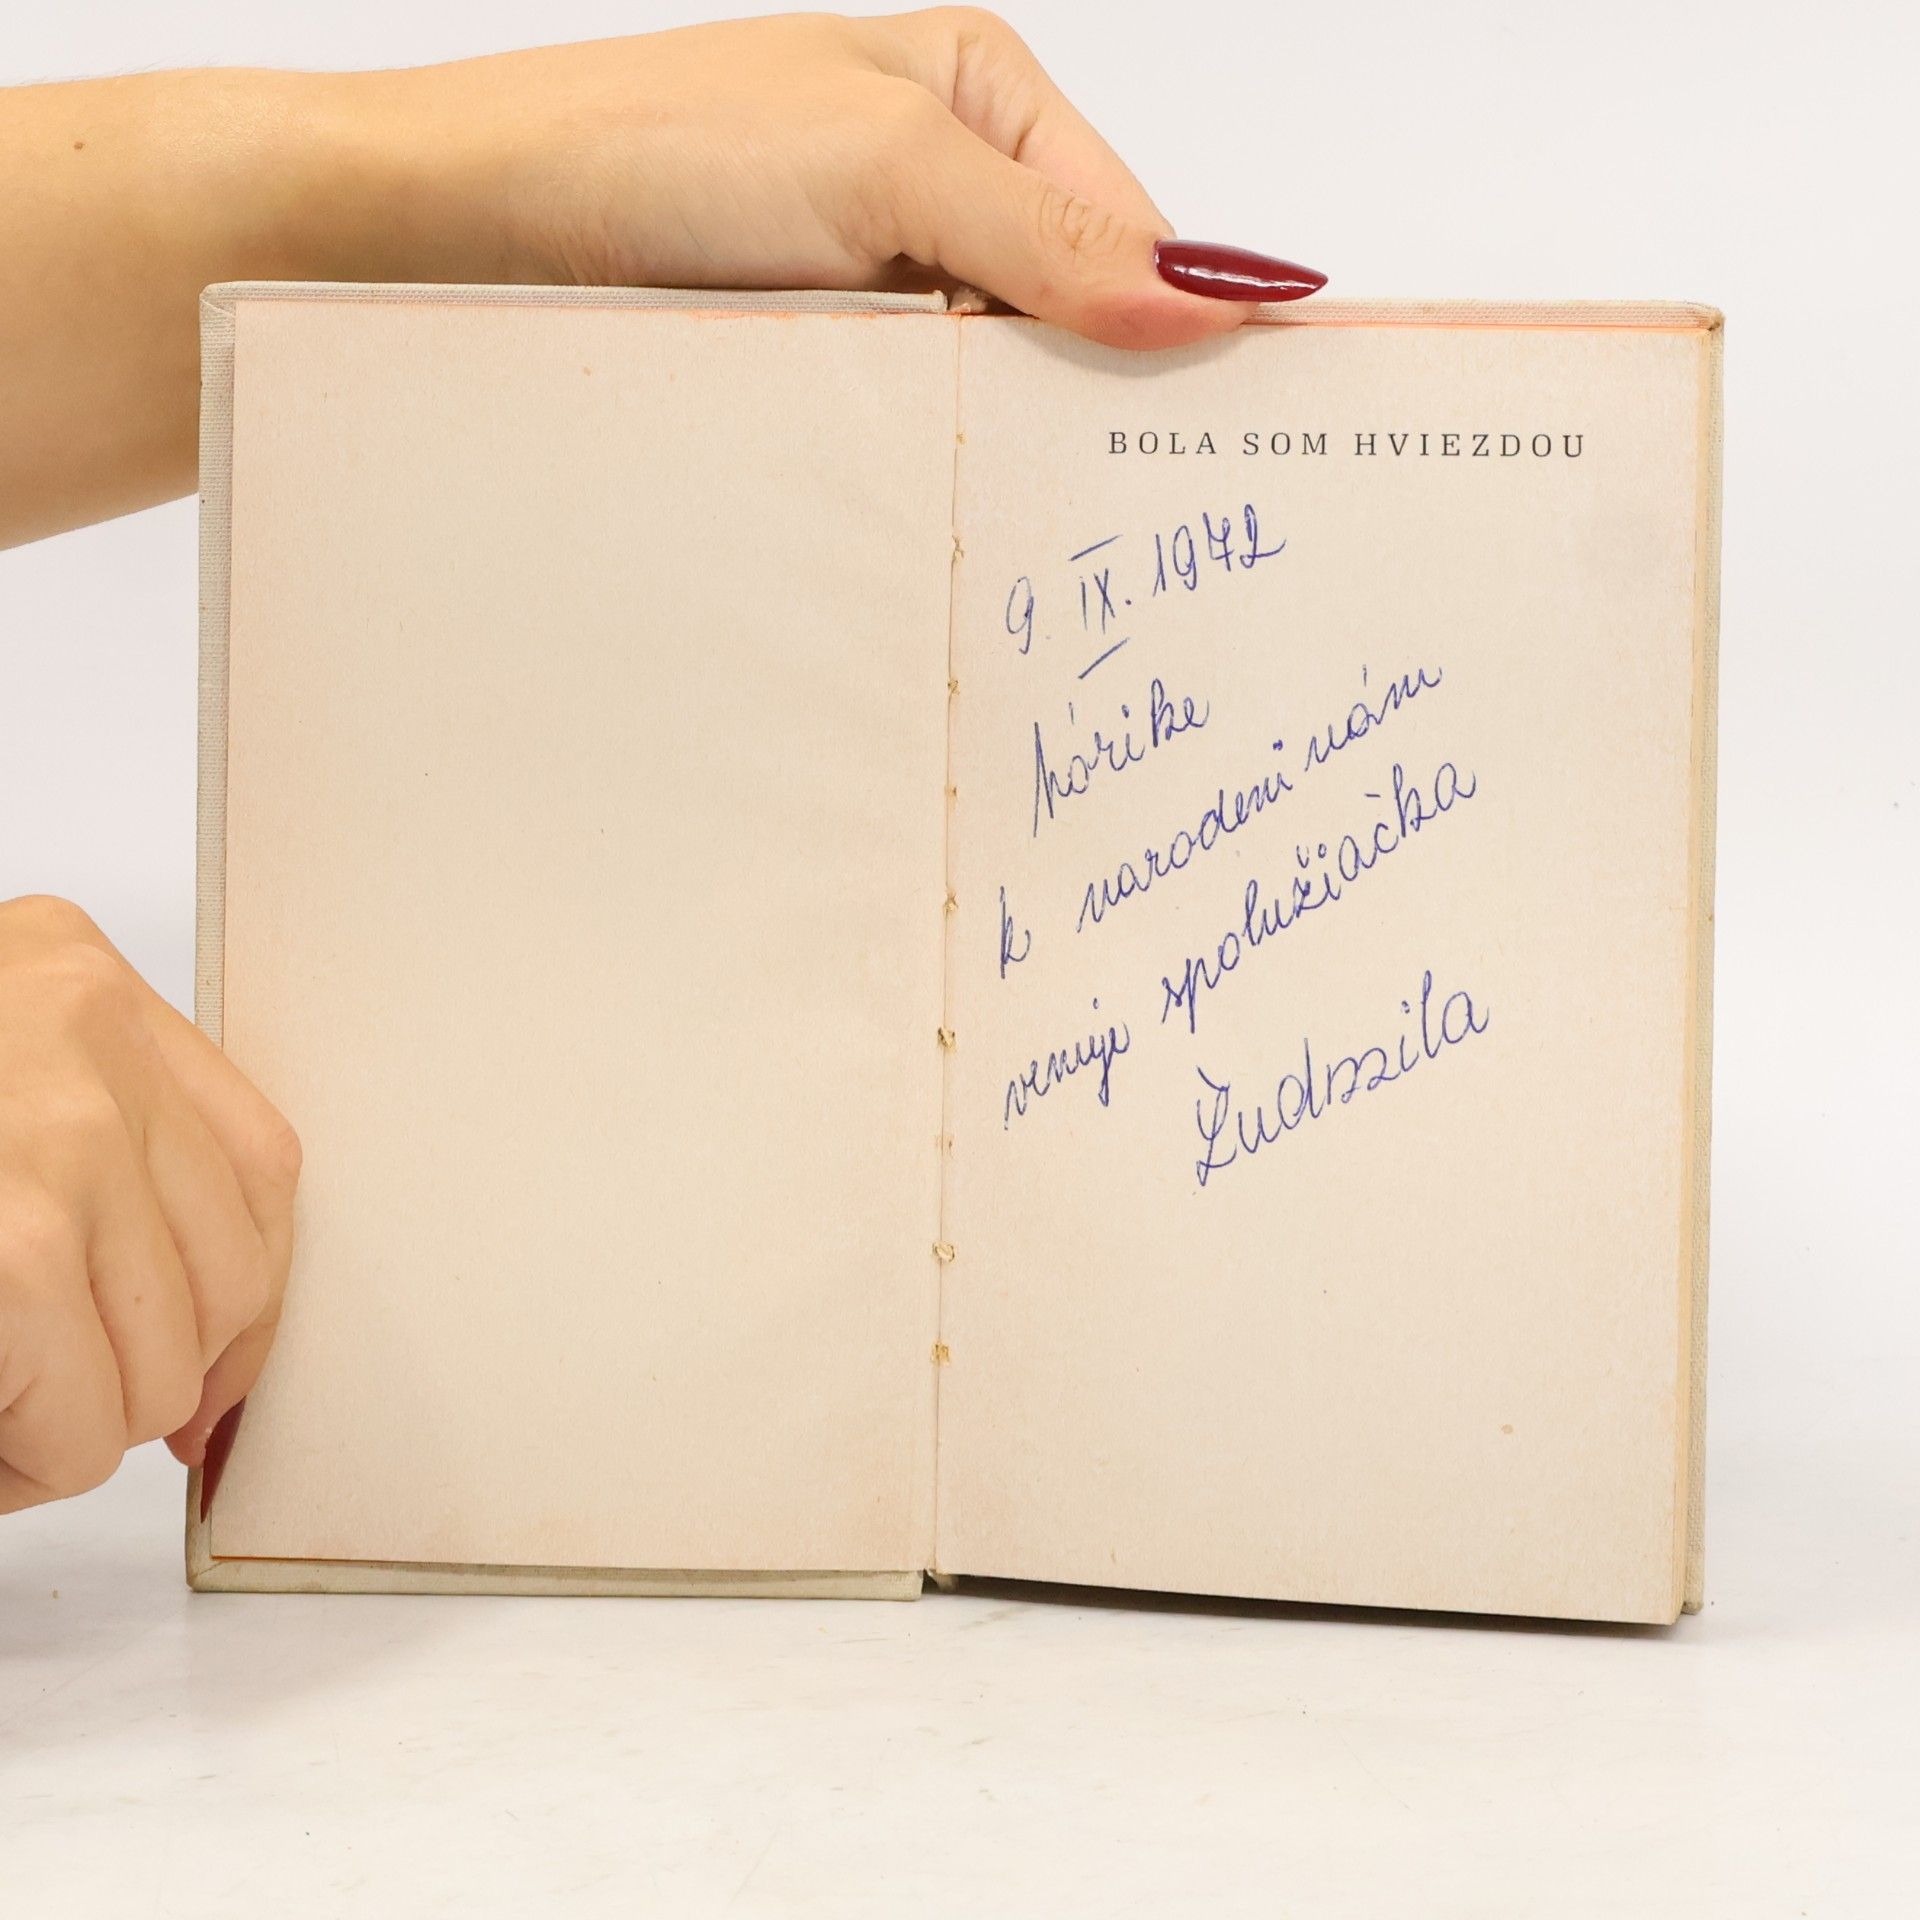 BOLA SOM HVIEZDOU
9. IX. 1972
Nórike
k narodeni nám
venuje spolužiačka
Ľudmila